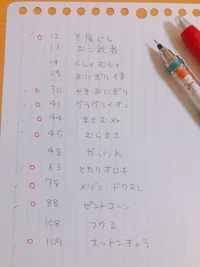 ○ 12 方屋じし
13 おこ武者
14 くしゃむしゃ
29 おにぎり侍
○ 30 やきおにぎり
○ 41 グラグライオン
○ 44 まさむね
○ 45 むらまさ
48 ガッツK
○ 63 ヒカリオロチ
○ 79 メゾン・ドワスレ
○ 88 ピントコーン
108 コウズ
○ 109 スットンきょう